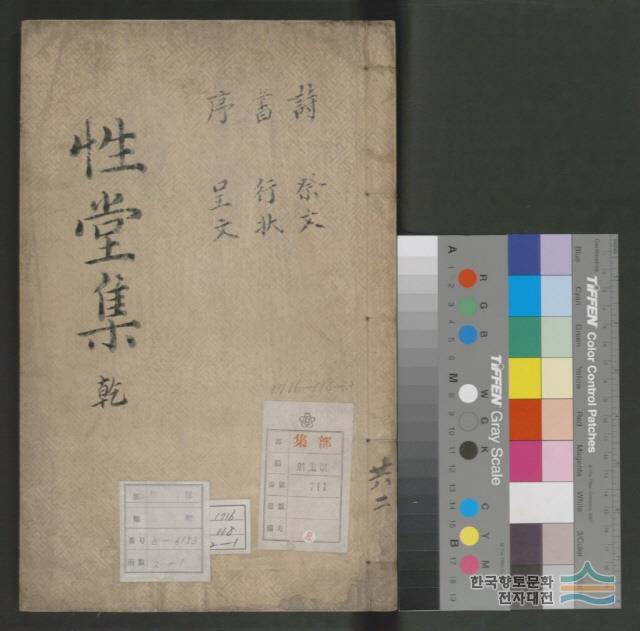 性堂集 乾
詩 祭文
書 行狀
序 呈文
共二
1716-118-2
集部
711
番号
2-1
1716
118
2-1
A
1 2 3 4 5 6
M
8 9 10 11 12 13 14 15
B
17 18 19
R G B
W G K
C Y M
TIFFEN Gray Scale
TIFFEN Color Control Patches
Blue
Cyan
Green
Yellow
Red
Magenta
White
3/Color
한국향토문화
전자대전